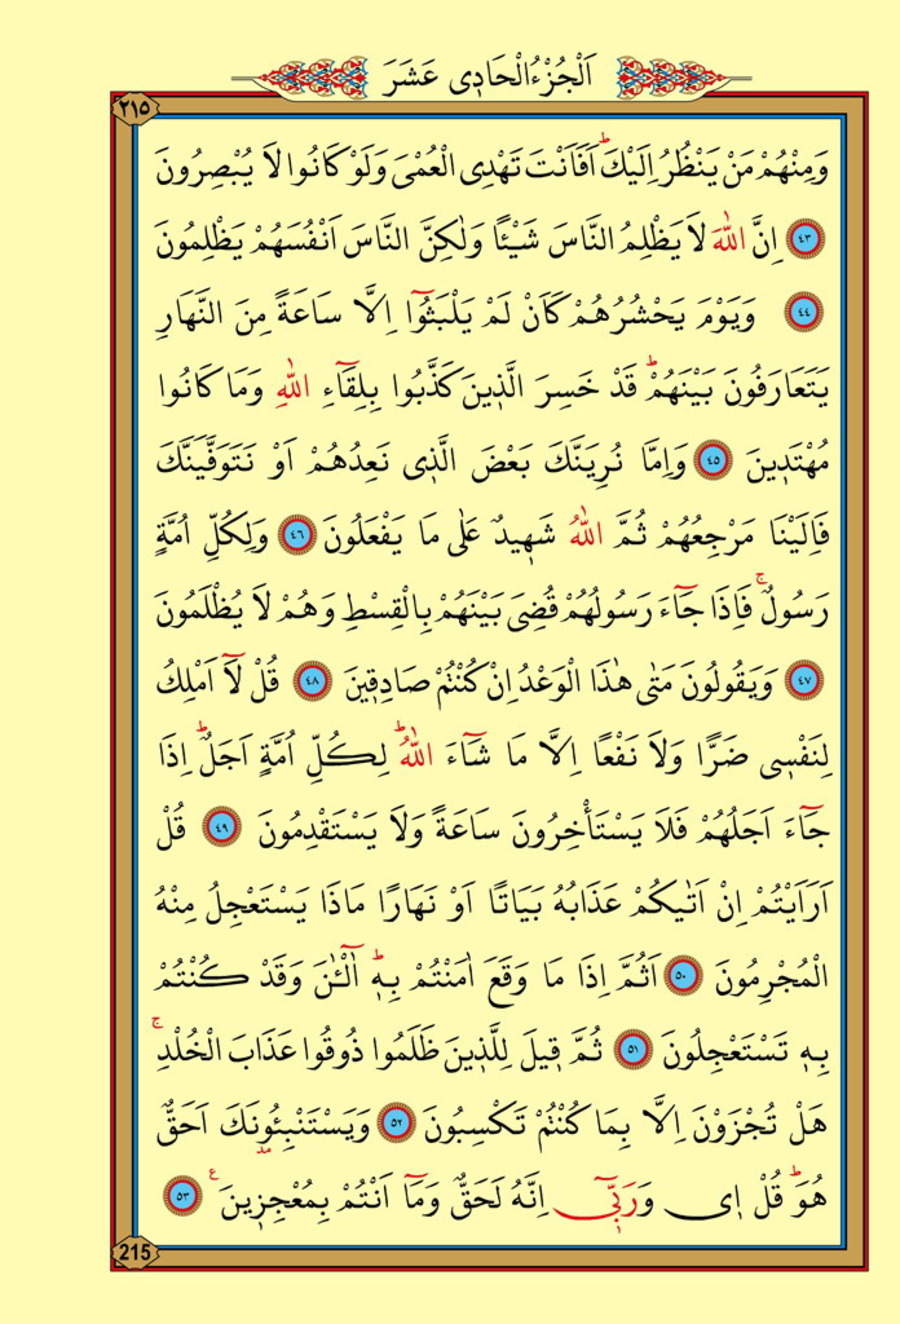 اَلْجُزْءُ الْحَادِى عَشَرَ
٢١٥
وَمِنْهُمْ مَنْ يَنْظُرُ اِلَيْكَۜ اَفَاَنْتَ تَهْدِى الْعُمْىَ وَلَوْ كَانُوا لَا يُبْصِرُونَ
﴿٤٣﴾ اِنَّ اللّٰهَ لَا يَظْلِمُ النَّاسَ شَيْـًٔا وَلٰكِنَّ النَّاسَ اَنْفُسَهُمْ يَظْلِمُونَ
﴿٤٤﴾ وَيَوْمَ يَحْشُرُهُمْ كَاَنْ لَمْ يَلْبَثُٓوا اِلَّا سَاعَةً مِنَ النَّهَارِ
يَتَعَارَفُونَ بَيْنَهُمْۜ قَدْ خَسِرَ الَّذ۪ينَ كَذَّبُوا بِلِقَٓاءِ اللّٰهِ وَمَا كَانُوا
مُهْتَد۪ينَ ﴿٤٥﴾ وَاِمَّا نُرِيَنَّكَ بَعْضَ الَّذ۪ى نَعِدُهُمْ اَوْ نَتَوَفَّيَنَّكَ
فَاِلَيْنَا مَرْجِعُهُمْ ثُمَّ اللّٰهُ شَه۪يدٌ عَلٰى مَا يَفْعَلُونَ ﴿٤٦﴾ وَلِكُلِّ اُمَّةٍ
رَسُولٌۚ فَاِذَا جَٓاءَ رَسُولُهُمْ قُضِىَ بَيْنَهُمْ بِالْقِسْطِ وَهُمْ لَا يُظْلَمُونَ
﴿٤٧﴾ وَيَقُولُونَ مَتٰى هٰذَا الْوَعْدُ اِنْ كُنْتُمْ صَادِق۪ينَ ﴿٤٨﴾ قُلْ لَٓا اَمْلِكُ
لِنَفْس۪ى ضَرًّا وَلَا نَفْعًا اِلَّا مَا شَٓاءَ اللّٰهُۜ لِكُلِّ اُمَّةٍ اَجَلٌۜ اِذَا
جَٓاءَ اَجَلُهُمْ فَلَا يَسْتَأْخِرُونَ سَاعَةً وَلَا يَسْتَقْدِمُونَ ﴿٤٩﴾ قُلْ
اَرَاَيْتُمْ اِنْ اَتٰيكُمْ عَذَابُهُ بَيَاتًا اَوْ نَهَارًا مَاذَا يَسْتَعْجِلُ مِنْهُ
الْمُجْرِمُونَ ﴿٥٠﴾ اَثُمَّ اِذَا مَا وَقَعَ اٰمَنْتُمْ بِه۪ۜ اٰۤلْـٰٔنَ وَقَدْ كُنْتُمْ
بِه۪ تَسْتَعْجِلُونَ ﴿٥١﴾ ثُمَّ ق۪يلَ لِلَّذ۪ينَ ظَلَمُوا ذُوقُوا عَذَابَ الْخُلْدِۚ
هَلْ تُجْزَوْنَ اِلَّا بِمَا كُنْتُمْ تَكْسِبُونَ ﴿٥٢﴾ وَيَسْتَنْبِئُونَكَ اَحَقٌّ
هُوَۜ قُلْ ا۪ى وَرَبّ۪ٓى اِنَّهُ لَحَقٌّ وَمَٓا اَنْتُمْ بِمُعْجِز۪ينَ ع ﴿٥٣﴾
215